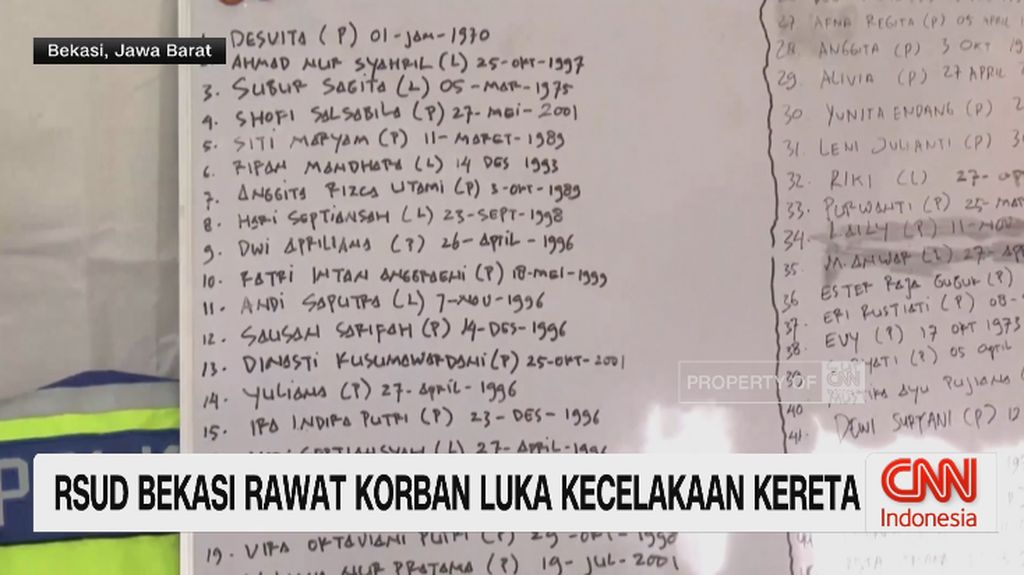 Bekasi, Jawa Barat
DESVITA (P) 01-JAN-1970
AHMAD NUR SYAHRIL (L) 25-OKT-1997
3. SUBUR SAGITA (L) 05-MAR-1975
4. SHOFI SALSABILA (P) 27-MEI-2001
5. SITI MARYAM (P) 11-MARET-1989
6. RIPAN MANDHARA (L) 14 DES 1993
7. ANGGITA RIZCA UTAMI (P) 3-OKT-1989
8. HARI SEPTIANSAH (L) 23-SEPT-1998
9. DWI APRILIANA (P) 26-APRIL-1996
10. RATRI INTAN ANGGRAENI (P) 18-MEI-1999
11. ANDI SAPUTRA (L) 7-NOV-1996
12. SAUSAN SARIFAH (P) 14-DES-1996
13. DINASTI KUSUMAWARDANI (P) 25-OKT-2001
14. YULIANA (P) 27-APRIL-1996
15. IRA INDIRA PUTRI (P) 23-DES-1996
(L) 27-APRIL-1996
19. VIRA OKTAVIANI PUTRI (P)
NUR PRATAMA (P) 19-JUL-2001
27. AFNA REGITA (P) 05 APRIL
28. ANGGITA (P) 3 OKT
29. ALIVIA (P) 27 APRIL
30. YUNITA ENDANG (P)
31. LENI JULIANTI (P)
32. RIKI (L) 27-
33. PURWANTI (P) 25-MAR
34. LAILY (P) 11-NOV
35. M. ANWAR (L) 27-
36 ESTER RAJA GUGUK (P)
37. ERI RUSTIATI (P) 08-
38. EVY (P) 17 OKT 1973
39. (P) 05 April
40 AYU PUJIANA
41. DEWI SURYANI (P)
PROPERTY OF CNN
RSUD BEKASI RAWAT KORBAN LUKA KECELAKAAN KERETA
CNN
Indonesia